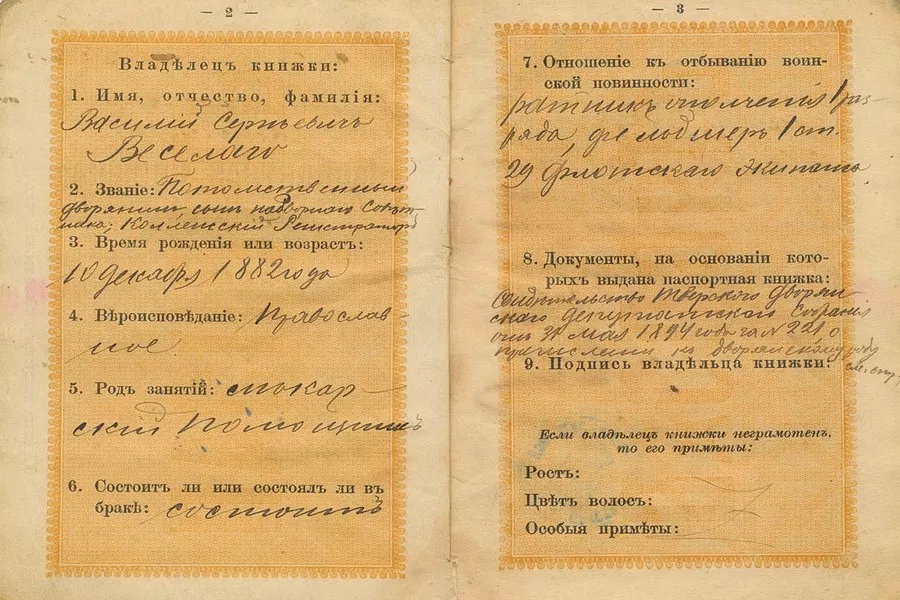 — 2 —
Владѣлецъ книжки:
1. Имя, отчество, фамилія:
Василій Сергѣевичъ
Веселаго
2. Званіе: Потомственный
дворянинъ, сынъ надворнаго Совѣт-
ника, Коллежскій Регистраторъ
3. Время рожденія или возрастъ:
10 декабря 1882 года
4. Вѣроисповѣданіе: Православ-
ное
5. Родъ занятій:
скій помощникъ
6. Состоитъ ли или состоялъ ли въ
бракѣ: состоитъ
— 3 —
7. Отношеніе къ отбыванію воин-
ской повинности:
ратникъ ополченія 1 раз-
ряда, фельдшеръ 1 ст.
29 флотскаго экипажа
8. Документы, на основаніи кото-
рыхъ выдана паспортная книжка:
Свидѣтельство Тверского Дворян-
скаго депутатскаго Собранія
отъ 31 мая 1894 года за № 221 о
причисленіи къ дворянскому роду
см. стр.
9. Подпись владѣльца книжки:
Если владѣлецъ книжки неграмотенъ,
то его примѣты:
Ростъ:
Цвѣтъ волосъ:
Особыя примѣты: